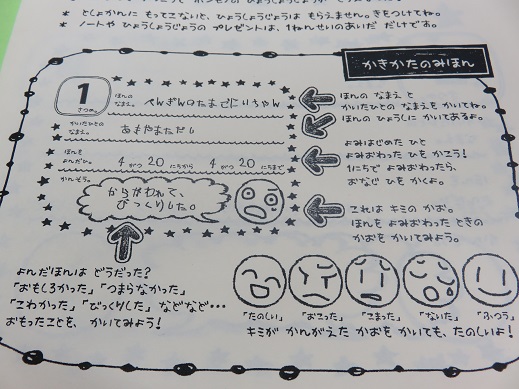 * としょかんに もってこないと、ひょうしょうじょうは もらえません。きをつけてね。
* ノートや ひょうしょうじょうの プレゼントは、1ねんせいのあいだ だけです。
かきかたのみほん
1
さつめ。
ほんの
なまえ。
ぺんぎんのたまごにいちゃん
かいたひとの
なまえ。
あきやまただし
ほんを
よんだひ。
4がつ20にちから 4がつ20にちまで
かんそう。
からかわれて、
びっくりした。
ほんの なまえ と
かいたひとの なまえを かいてね。
ほんの ひょうしに かいてあるよ。
よみはじめた ひと
よみおわった ひを かこう!
1にちで よみおわったら、
おなじ ひを かくよ。
これは キミの かお。
ほんを よみおわった ときの
かおを かいてみよう。
よんだほんは どうだった?
「おもしろかった」「つまらなかった」
「こわかった」「びっくりした」などなど…
おもったことを、かいてみよう!
「たのしい」 「おこった」 「こまった」 「ないた」 「ふつう」
キミが かんがえた かおを かいても、たのしいよ!